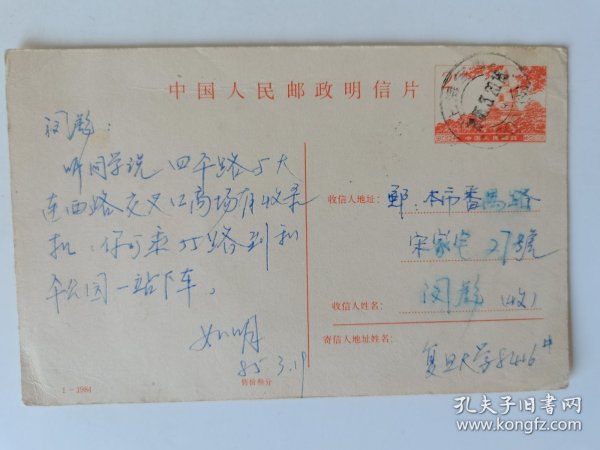 中国人民邮政明信片
中国人民邮政
闵静:
听同学说 四平路与大
连西路交叉口商场有收录
机,你可乘55路到和
平公园一站下车。
如明
85.3.19
收信人地址:
郵:本市番禺路
宋家宅27號
收信人姓名:
闵静 (收)
寄信人地址姓名:
复旦大学8446#
1-1984
售价叁分
孔夫子旧书网
www.kongfz.com